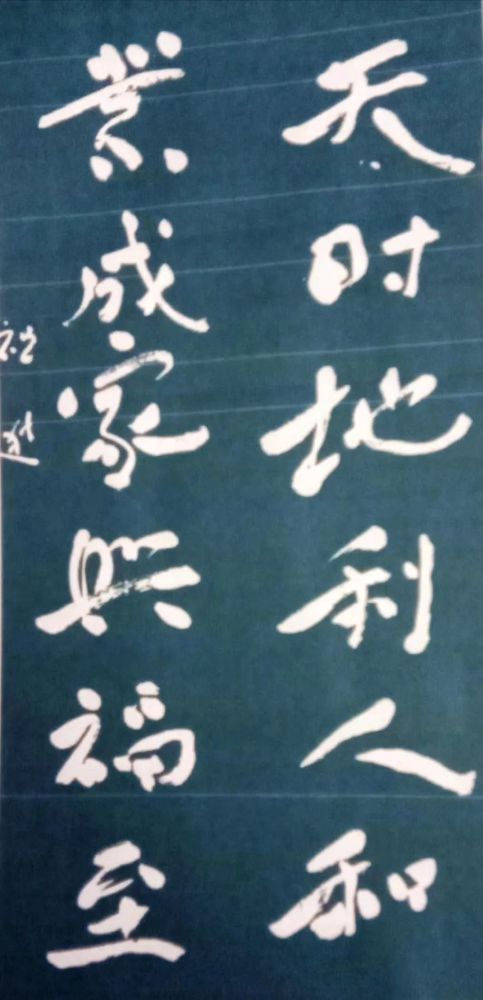 天时地利人和
业成家兴福至